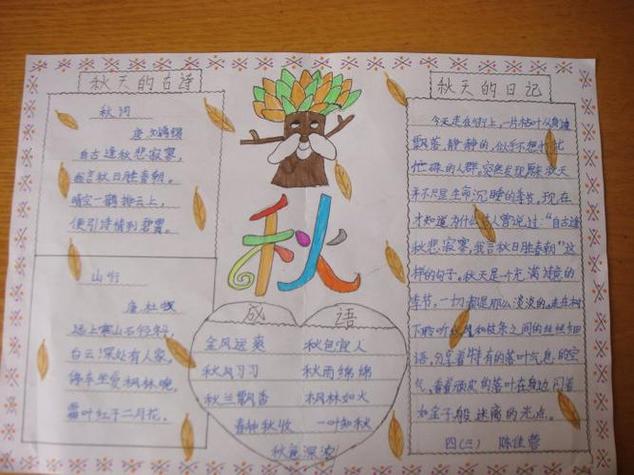 秋天的古诗
秋词
唐 刘禹锡
自古逢秋悲寂寥,
我言秋日胜春朝。
晴空一鹤排云上,
便引诗情到碧霄。
山行
唐 杜牧
远上寒山石径斜,
白云深处有人家,
停车坐爱枫林晚,
霜叶红于二月花。
秋
成语
金风送爽 秋色宜人
秋风习习 秋雨绵绵
秋兰飘香 枫林如火
春种秋收 一叶知秋
秋意深浓
秋天的日记
今天走在街上,一片枯叶从身边
飘落,静静的,似乎不想打扰
忙碌的人群。突然发现原来秋天
并不只是生命沉睡的季节,现在
才知道为什么古人曾说过:“自古逢
秋悲寂寥,我言秋日胜春朝”这
样的句子。秋天是个充满诗意的
季节,一切都是那么淡淡的。走在树
下聆听秋风和枝条之间的丝丝细
语,分享着特有的落叶气息的空
气,看着顽皮的落叶在身边闪着
如金子般迷离的光点。
四(三) 陈佳莹